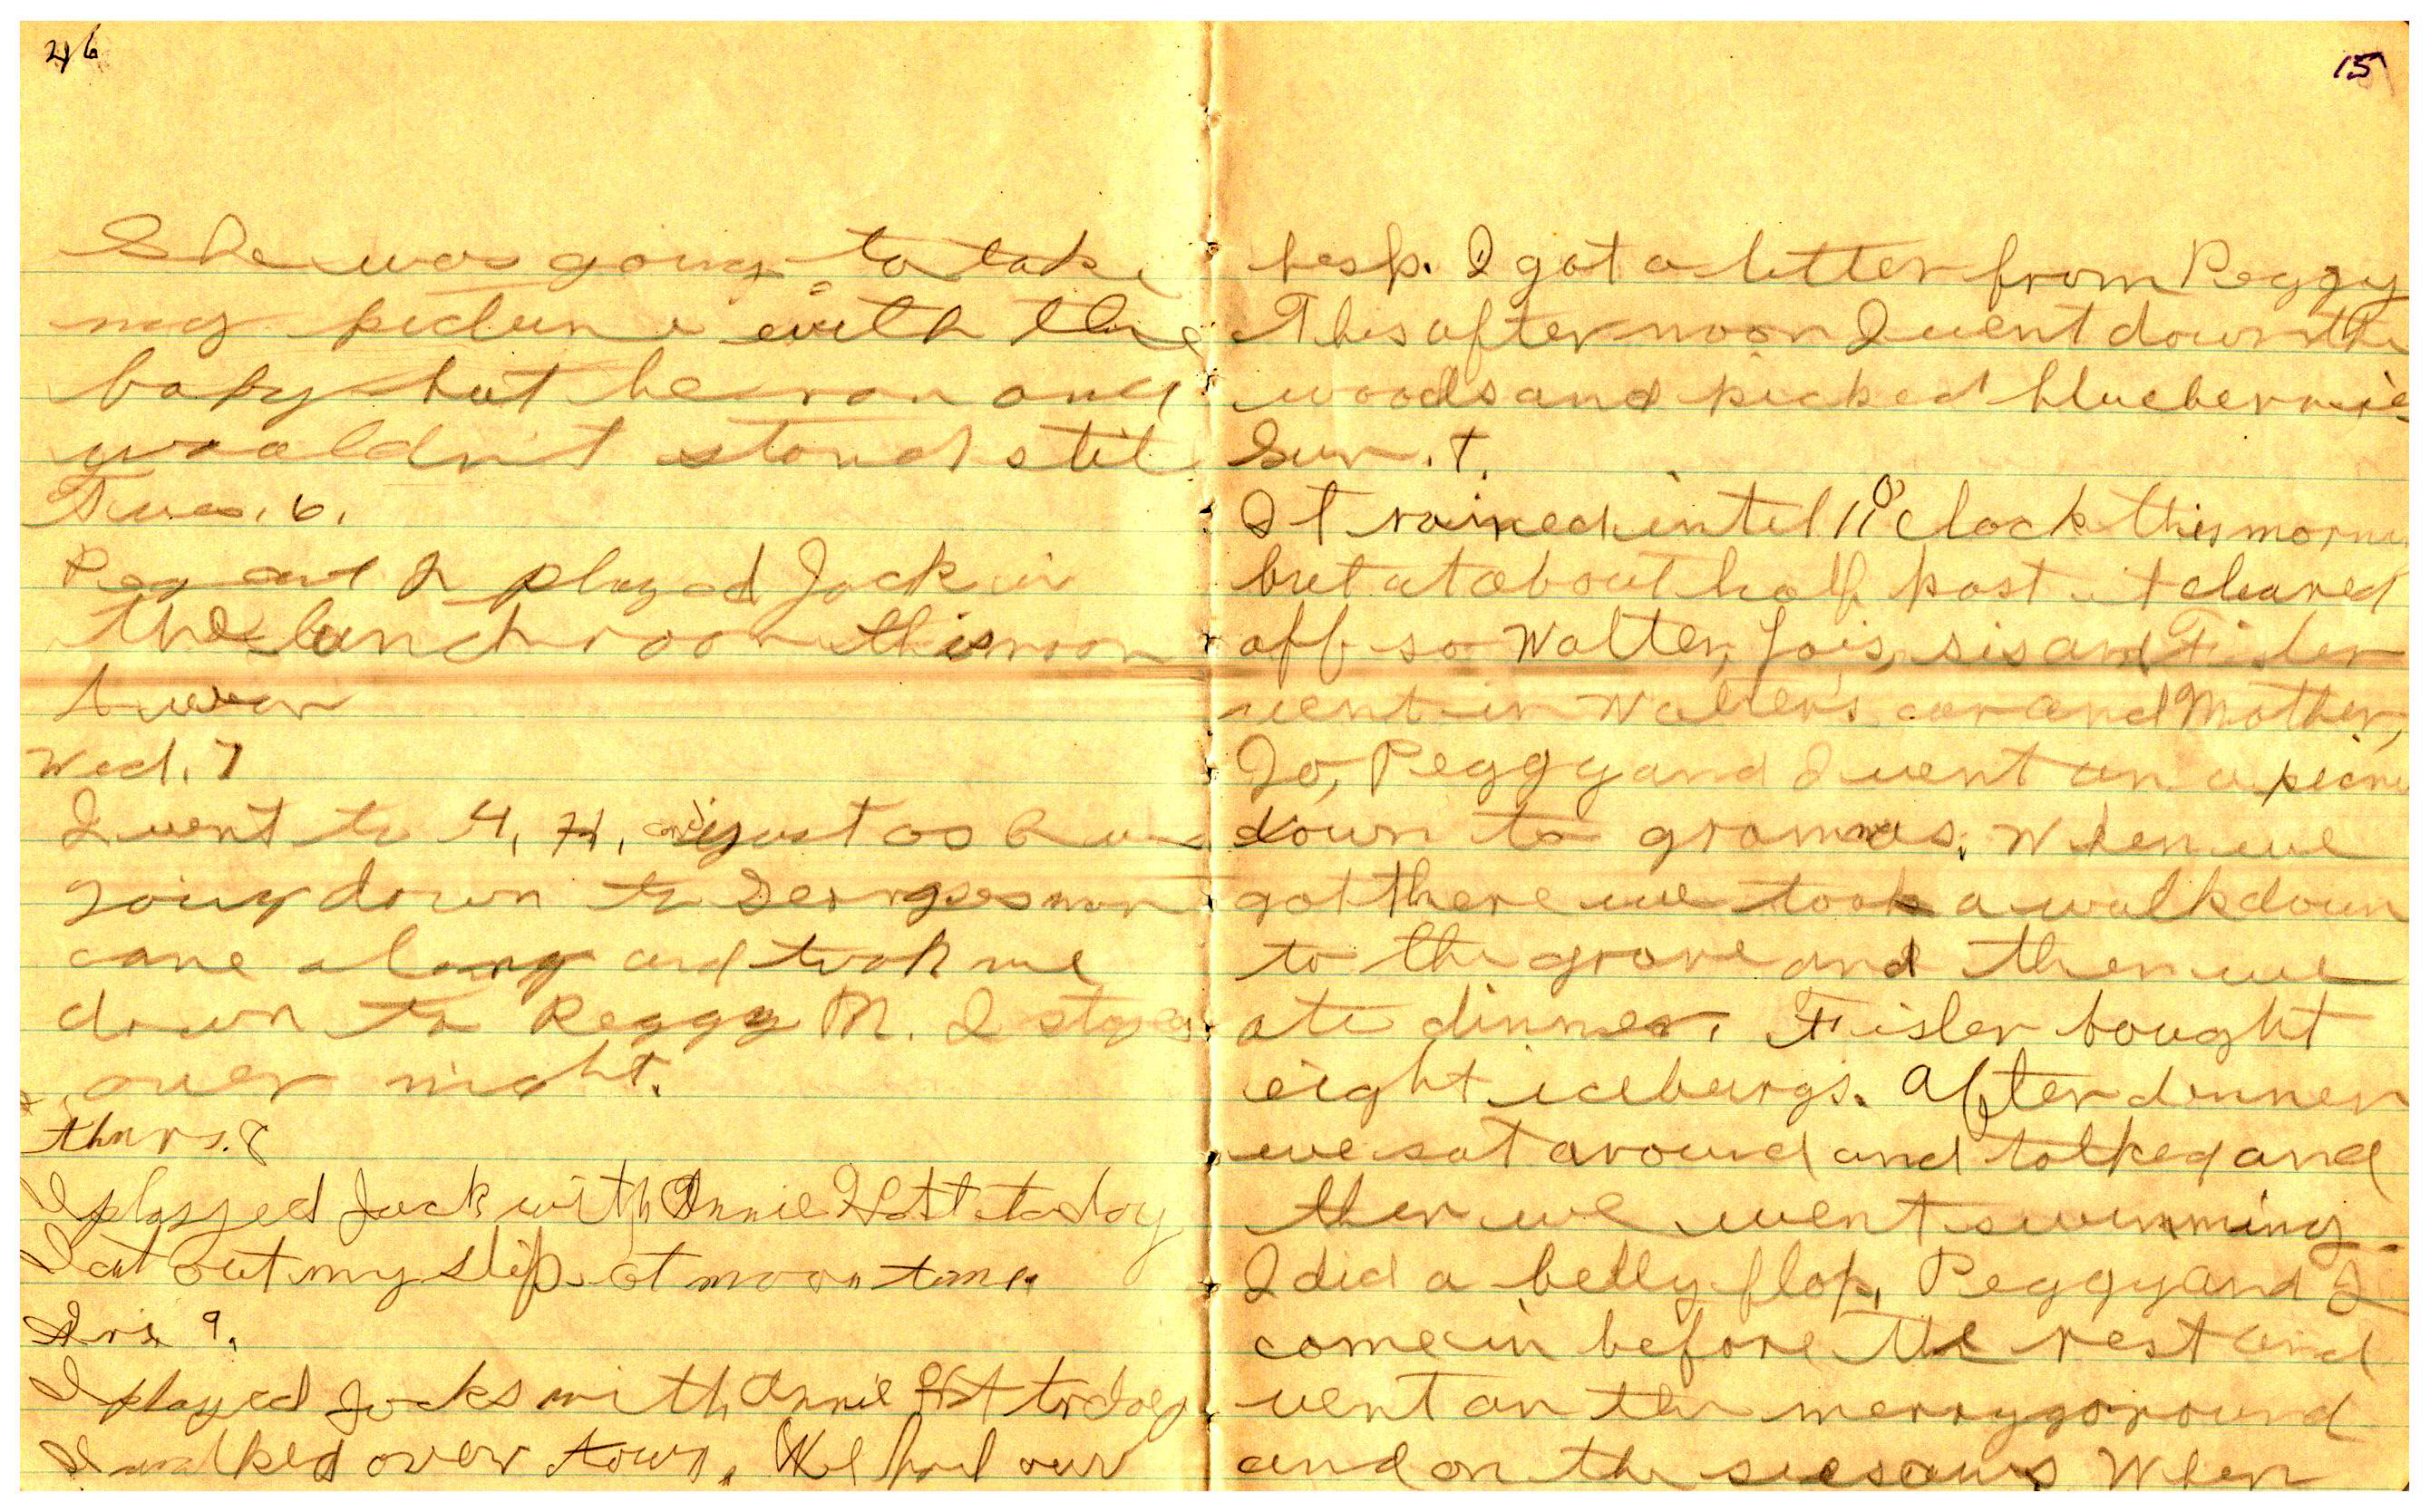 46
She was going to take
my picture with the
baby but he ran and
wouldn't stand still
Tues. 6.
Peg and I played Jack in
the lunch room this noon
I won
Wed. 7
I went to 4, H, and just as I was
going down to Georges mom
came along and took me
down to Peggy M. I stayed
over night.
Thurs. 8
I played Jack with Annie today
I cut out my slip at noon time
Fri. 9.
I played Jacks with Annie today
I walked over town. We had our
15
hesp. I got a letter from Peggy
This afternoon I went down the
woods and picked blueberries
Sun. 7.
It rained until 11 o'clock this morn
but at about half past it cleared
off so Walter, Lois, sis and Fisler
went in Walter's car and Mother,
Jo, Peggy and I went on a picni
down to grammas. When we
got there we took a walk down
to the grove and then we
ate dinner. Fisler bought
eight icebergs. After dinner
we sat around and talked and
then we went swimming.
I did a belly flop. Peggy and I
come in before the rest and
went on the merrygoround
and on the seesaws. When